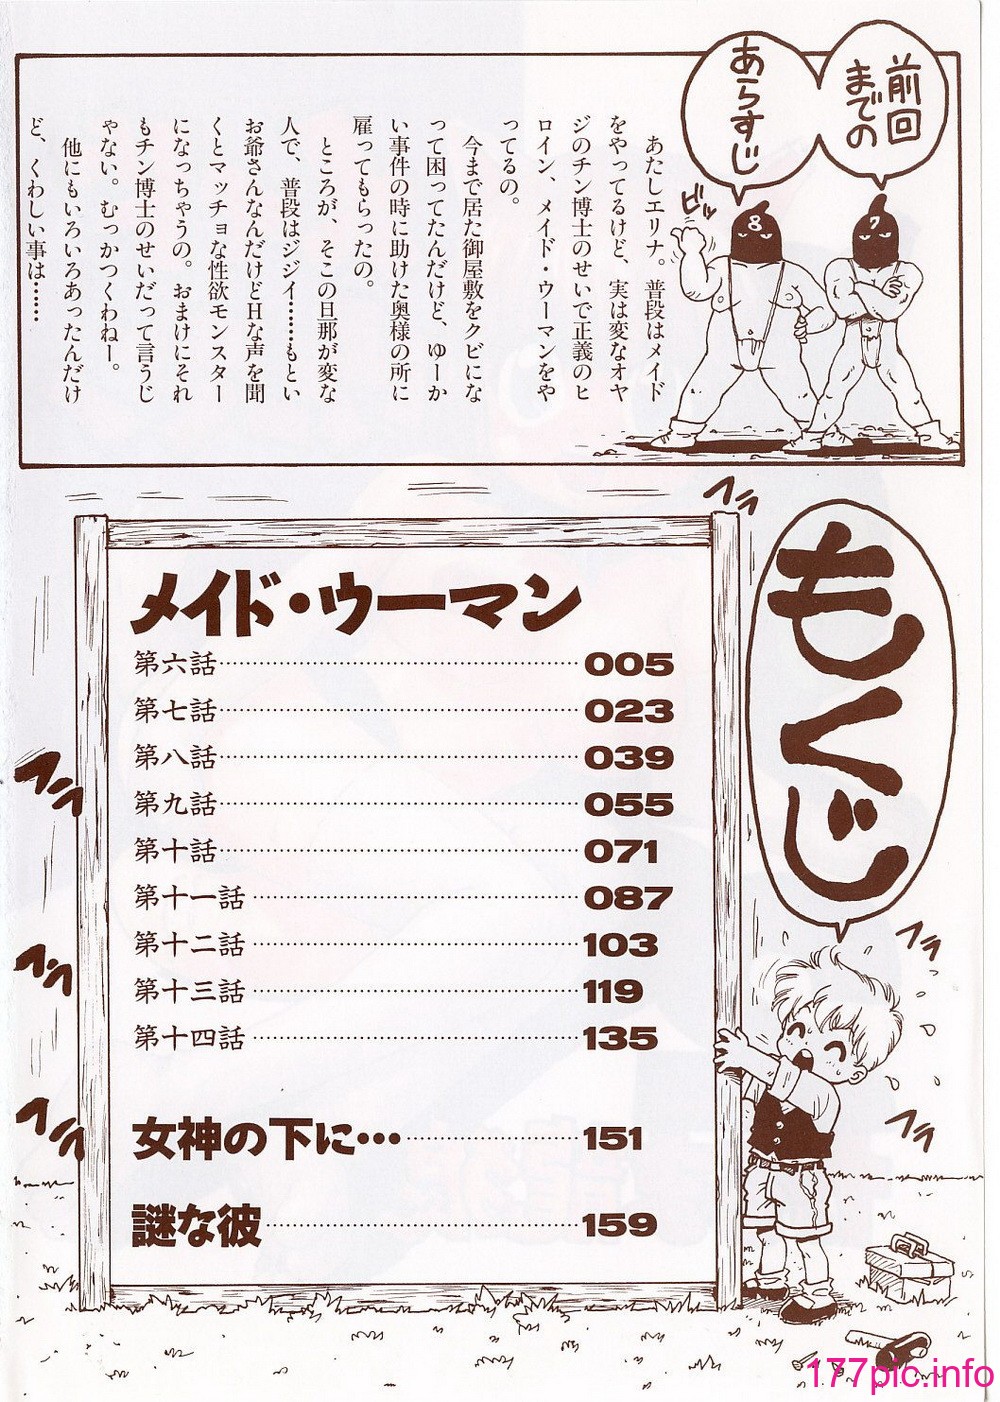 前回
までの
あらすじ
7
8
ビッ
あたしエリナ。普段はメイド
をやってるけど、実は変なオヤ
ジのチン博士のせいで正義のヒ
ロイン、メイド・ウーマンをや
ってるの。
今まで居た御屋敷をクビにな
って困ってたんだけど、ゆーか
い事件の時に助けた奥様の所に
雇ってもらったの。
ところが、そこの旦那が変な
人で、普段はジジイ……もとい
お爺さんなんだけどHな声を聞
くとマッチョな性欲モンスター
になっちゃうの。おまけにそれ
もチン博士のせいだって言うじ
ゃない。むっかつくわねー。
他にもいろいろあったんだけ
ど、くわしい事は……
もくじ
メイド・ウーマン
第六話 005
第七話 023
第八話 039
第九話 055
第十話 071
第十一話 087
第十二話 103
第十三話 119
第十四話 135
女神の下に… 151
謎な彼 159
フラ
フラ
フラ
フラ
フラ
フラ
177pic.info